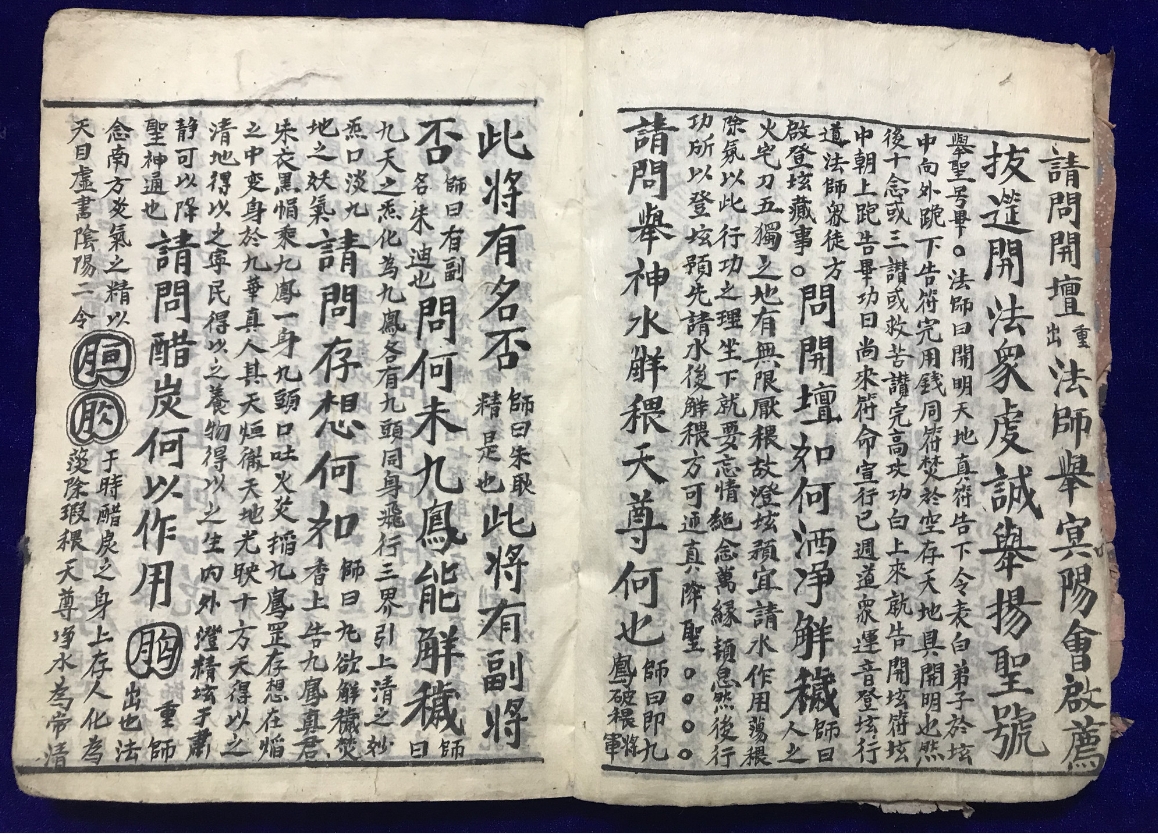 請問開壇重出法師舉冥陽會啟薦
拔筵開法眾虔誠舉揚聖號
舉聖号畢。法師曰開明天地真符告下令表白弟子於坛
中向外跪下告符完用錢同符焚於空存天地具開明也然
後十念或三讚或救苦讚完高攻功白上來就告開坛符坛
中朝上跪告畢功曰尚來符命宣行已週道眾運音登坛行
道法師眾徒方
啟登坛藏事。問開壇如何洒净解穢師曰人之
火宅刀五獨之地有無限厭穢故澄坛須宜請水作用蕩穢
除氛以此行功之理坐下就要忘情絕念萬緣頓息然後行
功所以登坛預先請水後解穢方可通真降聖。。。。
請問舉神水解穢天尊何也師曰即九鳳破穢將軍
此將有名否師曰朱耿精是也此將有副將
否師曰有副名朱迪也問何未九鳳能解穢師曰
九天之炁化為九鳳各有九頭同身飛行三界引上清之妙
炁口淡九
地之妖氣請問存想何如師曰九欲解穢焚香上告九鳳真君
朱衣黑帽乘九鳳一身九頭口吐火炎掐九鳳罡存想在熖
之中变身於九華真人其天烜衛天地光映十方天得以之
清地得以之寧民得以之養物得以之生內外澄精坛于肅
静可以降
聖神通也請問醋炭何以作用重出也師法
念南方炎氣之精以于時醋炭之身上存人化為
天目虛書陰陽二令蕩除瑕穢天尊净水為帝清